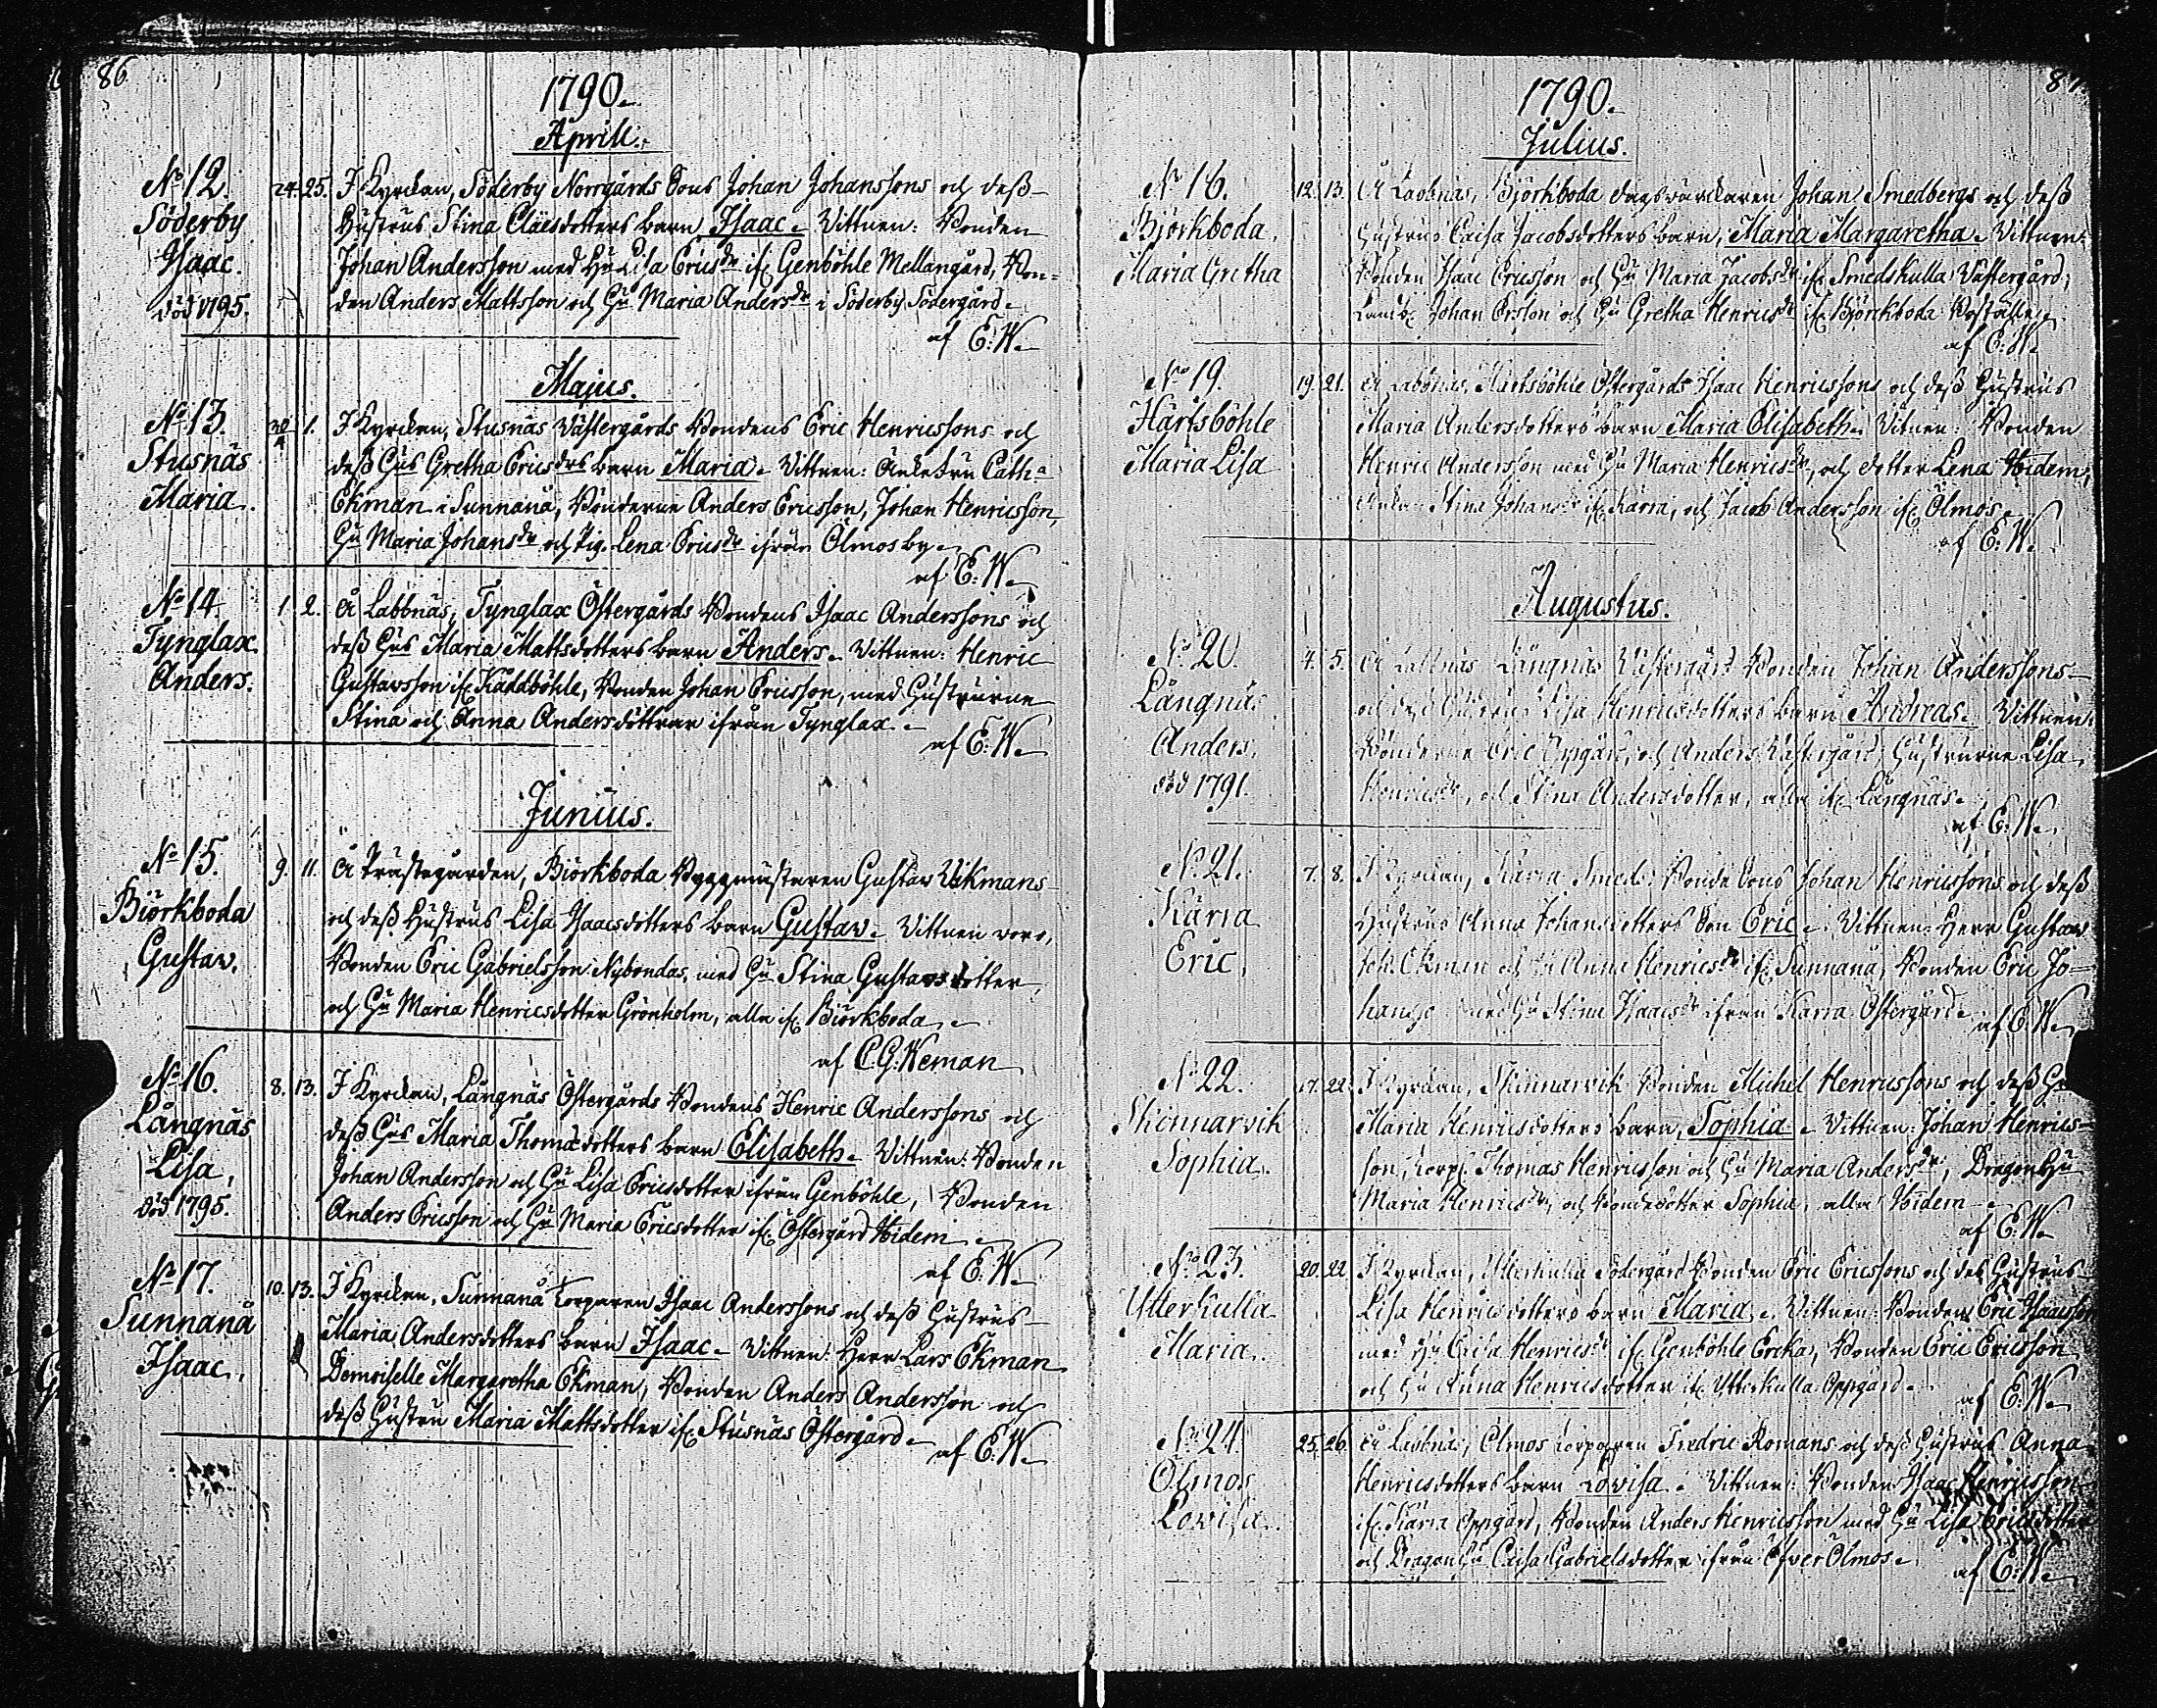 86
1790.
Aprill.
No 12.
Söderby
Isaac.
död 1795.
24. 25. I Kyrckan, Söderby Norrgårds Sons Johan Johanssons och dess
Hustrus Stina Claësdotters barn Isaac. Vittnen: Bonden
Johan Andersson med Hu Lisa Ericsdr if. Genböhle Mellangård, Bon-
den Anders Mattsson och Hu Maria Andersdr i Söderby Södergård.
af E:W.
Majus.
No 13.
Stusnäs
Maria.
30/4 1. I Kyrckan, Stusnäs Västergårds Bondens Eric Henricssons och
dess Hus Gretha Ericsdrs barn Maria. Vittnen: Ankefru Cath:a
Ekman i Sunnanå, Bönderne Anders Ericsson, Johan Henricsson,
Hu Maria Johansdr och Pig. Lena Ericsdr ifrån Ölmos by.
af E:W.
No 14.
Tynglax.
Anders.
1. 2. Å Labbnäs, Tynglax Östergårds Bondens Isaac Anderssons och
dess Hus Maria Mattsdotters barn Anders. Vittnen: Henric
Gustavsson if. Kåddböhle, Bonden Johan Ericsson, med Hustrurne
Stina och Anna Andersdöttrar ifrån Tynglax.
af E:W.
Junius.
No 15.
Biörkboda
Gustav.
9. 11. Å Prästegården, Biörkboda Byggmästaren Gustav Wikmans
och dess Hustrus Lisa Isaacsdotters barn Gustav. Vittnen woro,
Bonden Eric Gabrielsson Nybondas, med Hu Stina Gustavsdotter,
och Hu Maria Henricsdotter Grönholm, alla if. Biörkboda.
af C.G. Weman
No 16.
Långnäs
Lisa,
död 1795.
8. 13. I Kyrckan, Långnäs Östergårds Bondens Henric Anderssons och
dess Hus Maria Thomædotters barn Elisabeth. Vittnen: Bonden
Johan Andersson och Hu Lisa Ericsdotter ifrån Genböhle, Bonden
Anders Ericsson och Hu Maria Ericsdotter if. Östergård Ibidem.
af E:W.
No 17.
Sunnanå
Isaac.
10. 13. I Kyrckan, Sunnanå Torparen Isaac Anderssons och dess Hustrus
Maria Andersdotters barn Isaac. Vittnen: Herr Lars Ekman
Demoiselle Margaretha Ekman, Bonden Anders Andersson och
dess Hustru Maria Mattsdotter if. Stusnäs Östergård.
af E:W.
87
1790.
Julius.
No 18.
Björkboda.
Maria Gretha
12. 13. Å Labbnäs, Björkboda dagsvärckaren Johan Smedbergs och dess
Hustrus Caisa Jacobsdotters barn, Maria Margaretha. Vittnen:
Bonden Isaac Ericsson och Hu Maria Jacobsdr if. Smedskulla Västergård,
Johan Ersson och Hu Gretha Henricsdr if. Björckboda
af E:W.
No 19.
Hårtsböhle
Maria Lisa
19. 21. Å Labbnäs, Hårtsböhle Östergårds Isaac Henricssons och dess Hustrus
Maria Andersdotters barn Maria Elisabeth. Vitnen: Bonden
Henric Andersson med Hu Maria Henricsdr, och dotter Lena Ibidem,
Stina Johansdr if. Kärra, och Jacob Andersson if. Ölmos.
af E:W.
Augustus.
No 20.
Långnäs
Anders.
död 1791.
4. 5. Å Labbnäs Långnäs Västergård Bonden Johan Anderssons
och dess Hustrus Lisa Henricsdotters barn Andreas. Vittnen:
Bönderne Eric Oppgård, och Anders Västergård, Hustrurne Lisa
Henricsdr, och Stina Andersdotter, alla if. Långnäs.
af E:W.
No 21.
Kärra
Eric.
7. 8. I Kyrckan, Kärra Smeds Bonde Sons Johan Henricssons och dess
Hustrus Anna Johansdotters Son Eric. Vittnen: Herr Gustav
Joh. Ekman och Hu Anna Henricsdr if. Sunnanå, Bonden Eric Jo-
hansson med Hu Stina Isaacsdr ifrån Kärra Östergård.
af E:W.
No 22.
Skinnarvik
Sophia.
17. 22. I Kyrckan, Skinnarvik Bonden Michel Henricssons och dess Hu
Maria Henricsdotters barn, Sophia. Vittnen: Johan Henrics-
son, Corpl. Thomas Henricsson och Hu Maria Andersdr, Dragon Hu
Maria Henricsdr, och Bondedotter Sophia, alla Ibidem.
af E:W.
No 23.
Ytterkulla
Maria.
20. 22. I Kyrckan, Ytterkulla Södergård Bonden Eric Ericssons och dess Hustrus
Lisa Henricsdotters barn Maria. Vittnen: Bonden Eric Isaacsson
med Hu Caisa Henricsdr if. Genböhle Ercka, Bonden Eric Ericsson
och Hu Anna Henricsdotter if. Ytterkulla Oppgård.
af E:W.
No 24.
Ölmos
Lovisa.
25. 26. Å Labbnäs, Ölmos Torparen Fredric Romans och dess Hustrus Anna
Henricsdotters barn Lovisa. Vittnen: Bonden Isaac Henricsson
if. Kärra Oppgård, Bonden Anders Henricsson med Hu Lisa Ericsdotter
och Dragon Hu Caisa Gabrielsdotter ifrån Öfver Ölmos.
af E:W.